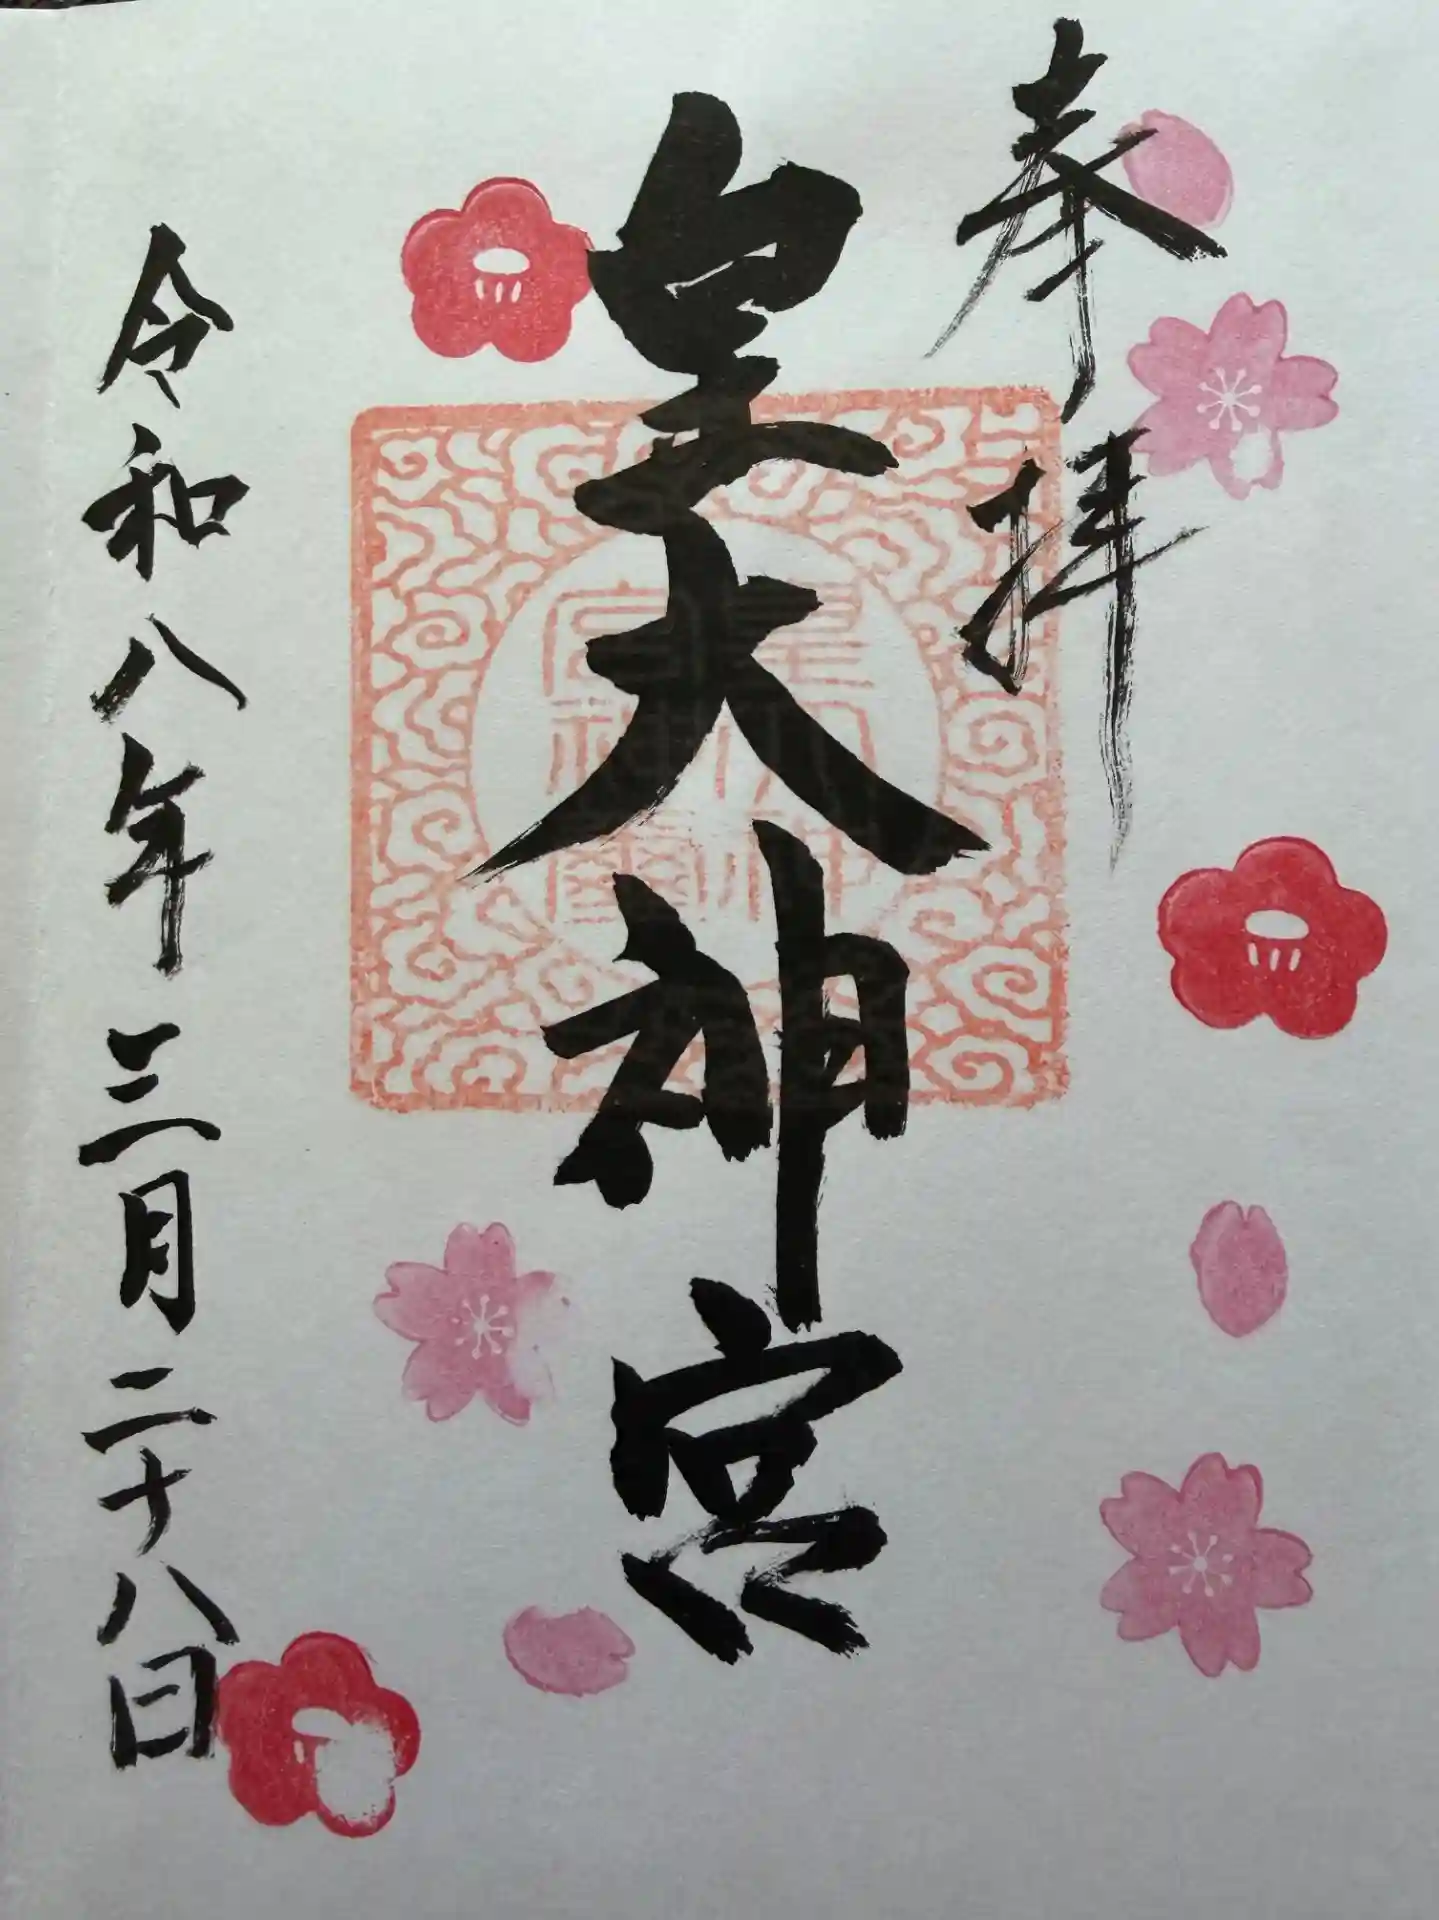 奉拝
皇大神宮
令和八年三月二十八日